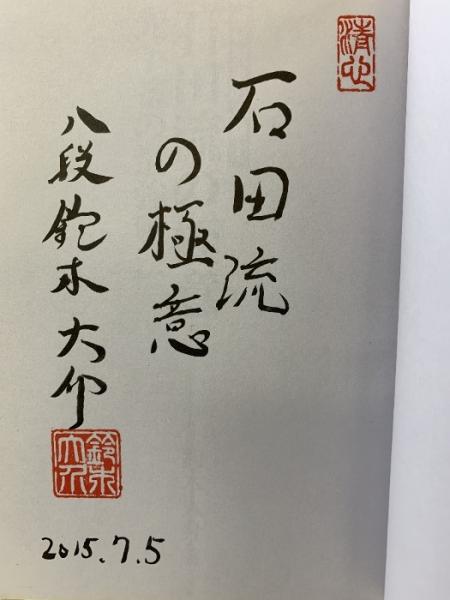 石田流
の極意
八段 鈴木大介
鈴木
大介
2015.7.5